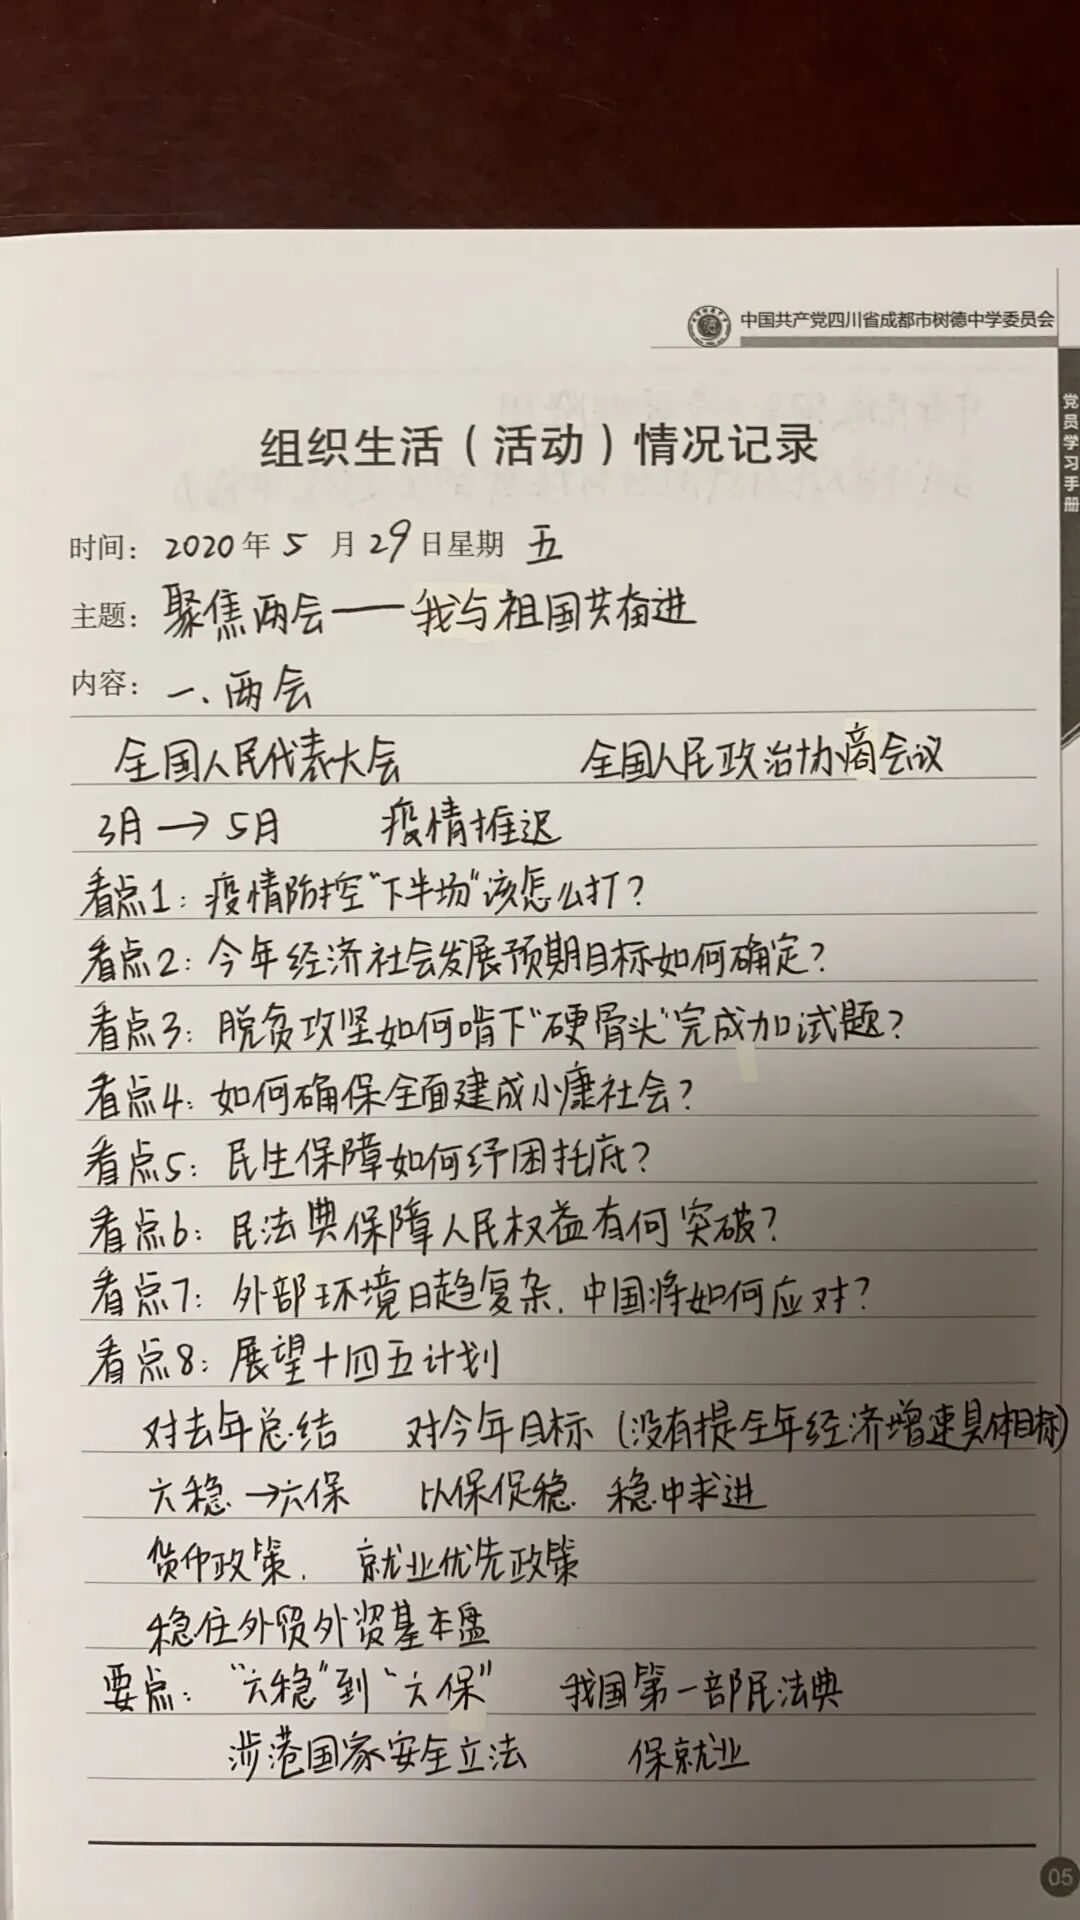 中国共产党四川省成都市树德中学委员会
党员学习手册
组织生活（活动）情况记录
时间：2020年5月29日星期五
主题：聚焦两会——我与祖国共奋进
内容：一、两会
全国人民代表大会 全国人民政治协商会议
3月→5月 疫情推迟
看点1：疫情防控"下半场"该怎么打？
看点2：今年经济社会发展预期目标如何确定？
看点3：脱贫攻坚如何啃下"硬骨头"完成加试题？
看点4：如何确保全面建成小康社会？
看点5：民生保障如何纾困托底？
看点6：民法典保障人民权益有何突破？
看点7：外部环境日趋复杂，中国将如何应对？
看点8：展望十四五计划
对去年总结 对今年目标（没有提全年经济增速具体目标）
六稳→六保 以保促稳 稳中求进
货币政策. 就业优先政策
稳住外贸外资基本盘
要点："六稳"到"六保" 我国第一部民法典
涉港国家安全立法 保就业
05